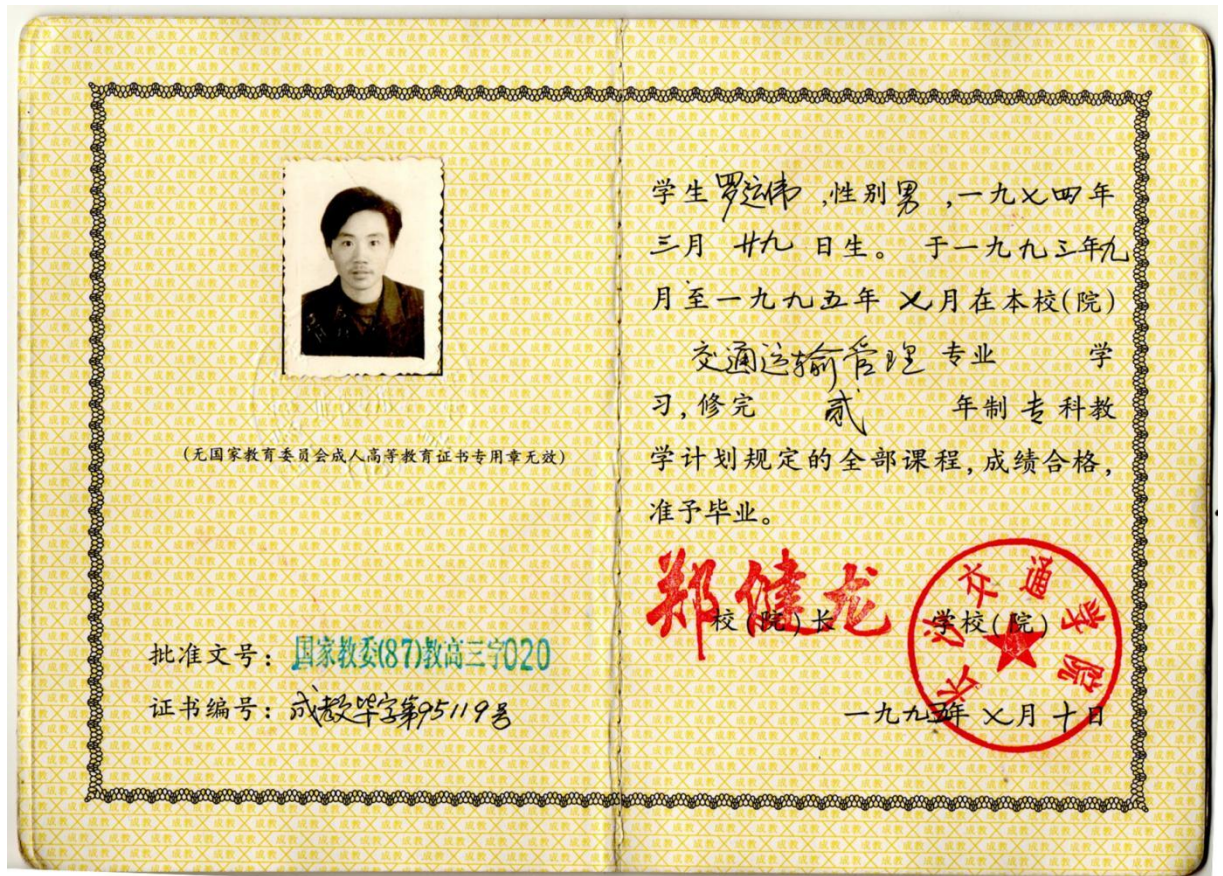 (无国家教育委员会成人高等教育证书专用章无效)
批准文号：国家教委(87)教高三字020
证书编号：成教毕字第95119号
学生罗运伟,性别男,一九七四年
三月廿九日生。于一九九三年九
月至一九九五年七月在本校(院)
交通运输管理专业 学
习,修完 贰 年制专科教
学计划规定的全部课程,成绩合格,
准予毕业。
郑健龙
校(院)长
学校(院)
长沙交通学院
一九九五年七月十日